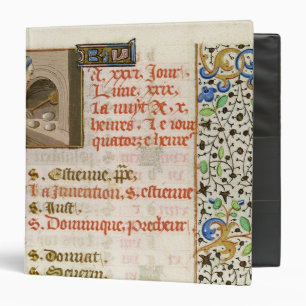 A xxxi. Jour
Lune, xxix,
La nuyt A, x,
heures, Le iour
quatorze heure
S. Estienne, ppe.
La Invention, S. estienne
S. Just
S. Dominique, prescheur
S. Donnat
S. Severin